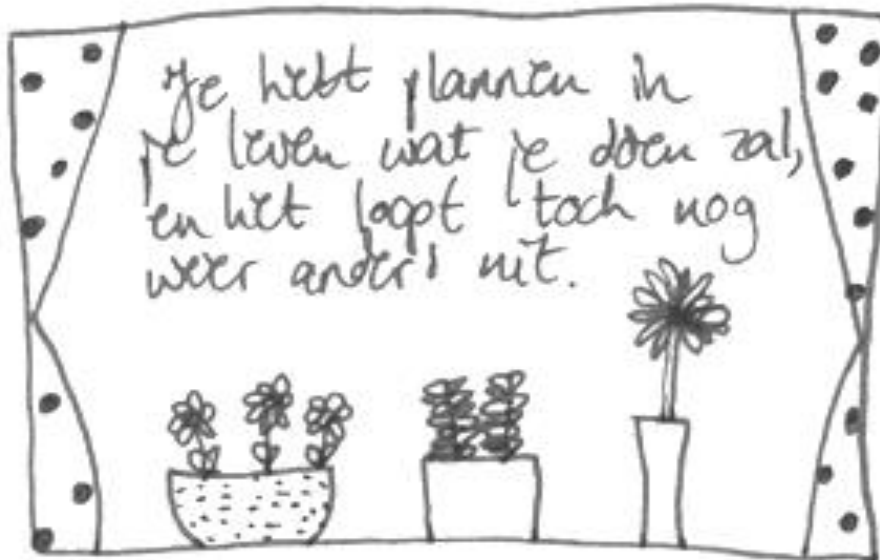 Je hebt plannen in
je leven wat je doen zal,
en het loopt toch nog
weer anders uit.